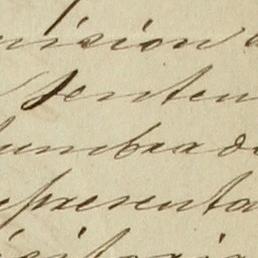 nision
senten
lumbrado
epresenta